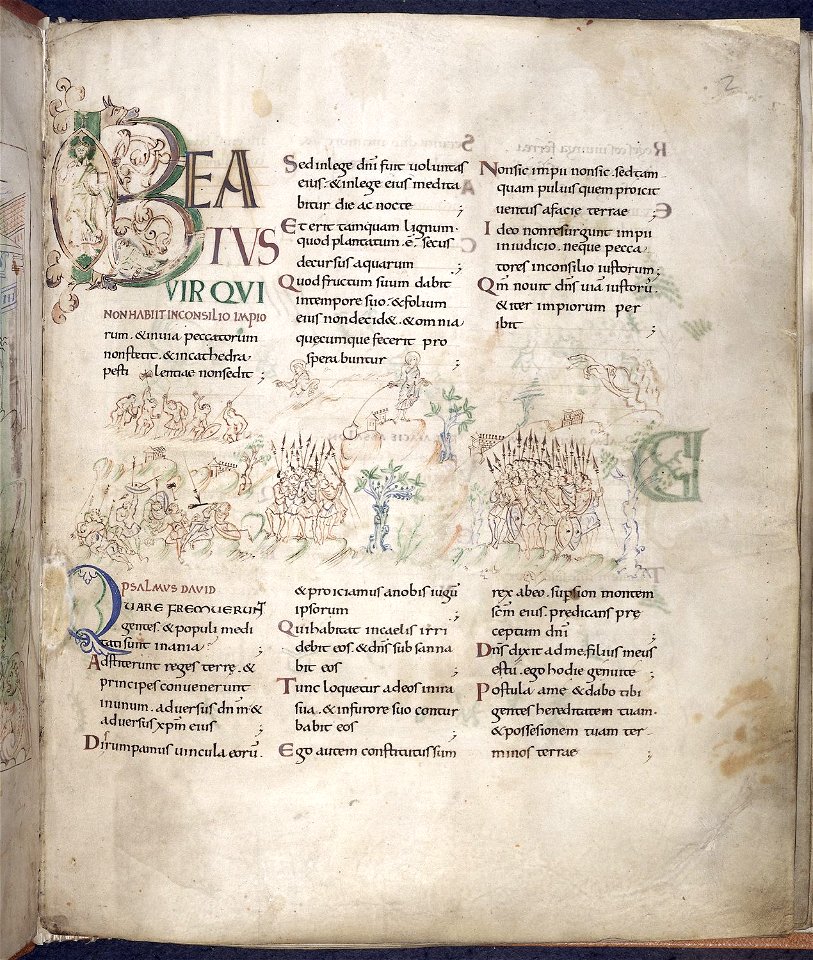 2
BEA
TVS
VIR QVI
NON HABIIT IN CONSILIO IMPIO
rum · & in uia peccatorum
non stetit · & in cathedra
pesti lentiae non sedit ;
Sed in lege dn̄i fuit uoluntas
eius · & in lege eius medita
bitur die ac nocte ;
Et erit tamquam lignum ·
quod plantatum · ē · secus
decursus aquarum ;
Quod fructum suum dabit
in tempore suo · & folium
eius non decid& · & omnia
quęcumque fecerit pro
spera buntur ;
Non sic impii non sic · sed tam
quam puluis quem proicit
uentus a facie terrae ;
Ideo non resurgunt impii
in iudicio · neque pecca
tores in consilio iustorum ;
Qm̄ nouit dn̄s uiā iustorū ·
& iter impiorum per
ibit ;
PSALMUS DAVID
QUARE FREMUERUNT
gentes · & populi medi
tati sunt inania ;
Adstiterunt reges terrę · &
principes conuenerunt
in unum · aduersus dn̄m &
aduersus xp̄m eius ;
Dirumpamus uincula eorū ·
& proiciamus a nobis iugū
ipsorum ;
Qui habitat in caelis irri
debit eos · & dn̄s sub sanna
bit eos ;
Tunc loquetur ad eos in ira
sua · & in furore suo contur
babit eos ;
Ego autem constitutus sum
rex ab eo · sup sion montem
sc̄m eius · predicans prę
ceptum dn̄i ;
Dn̄s dixit ad me · filius meus
es tu · ego hodie genui te ;
Postula a me & dabo tibi
gentes hereditatem tuam ·
& possesionem tuam ter
minos terrae ;